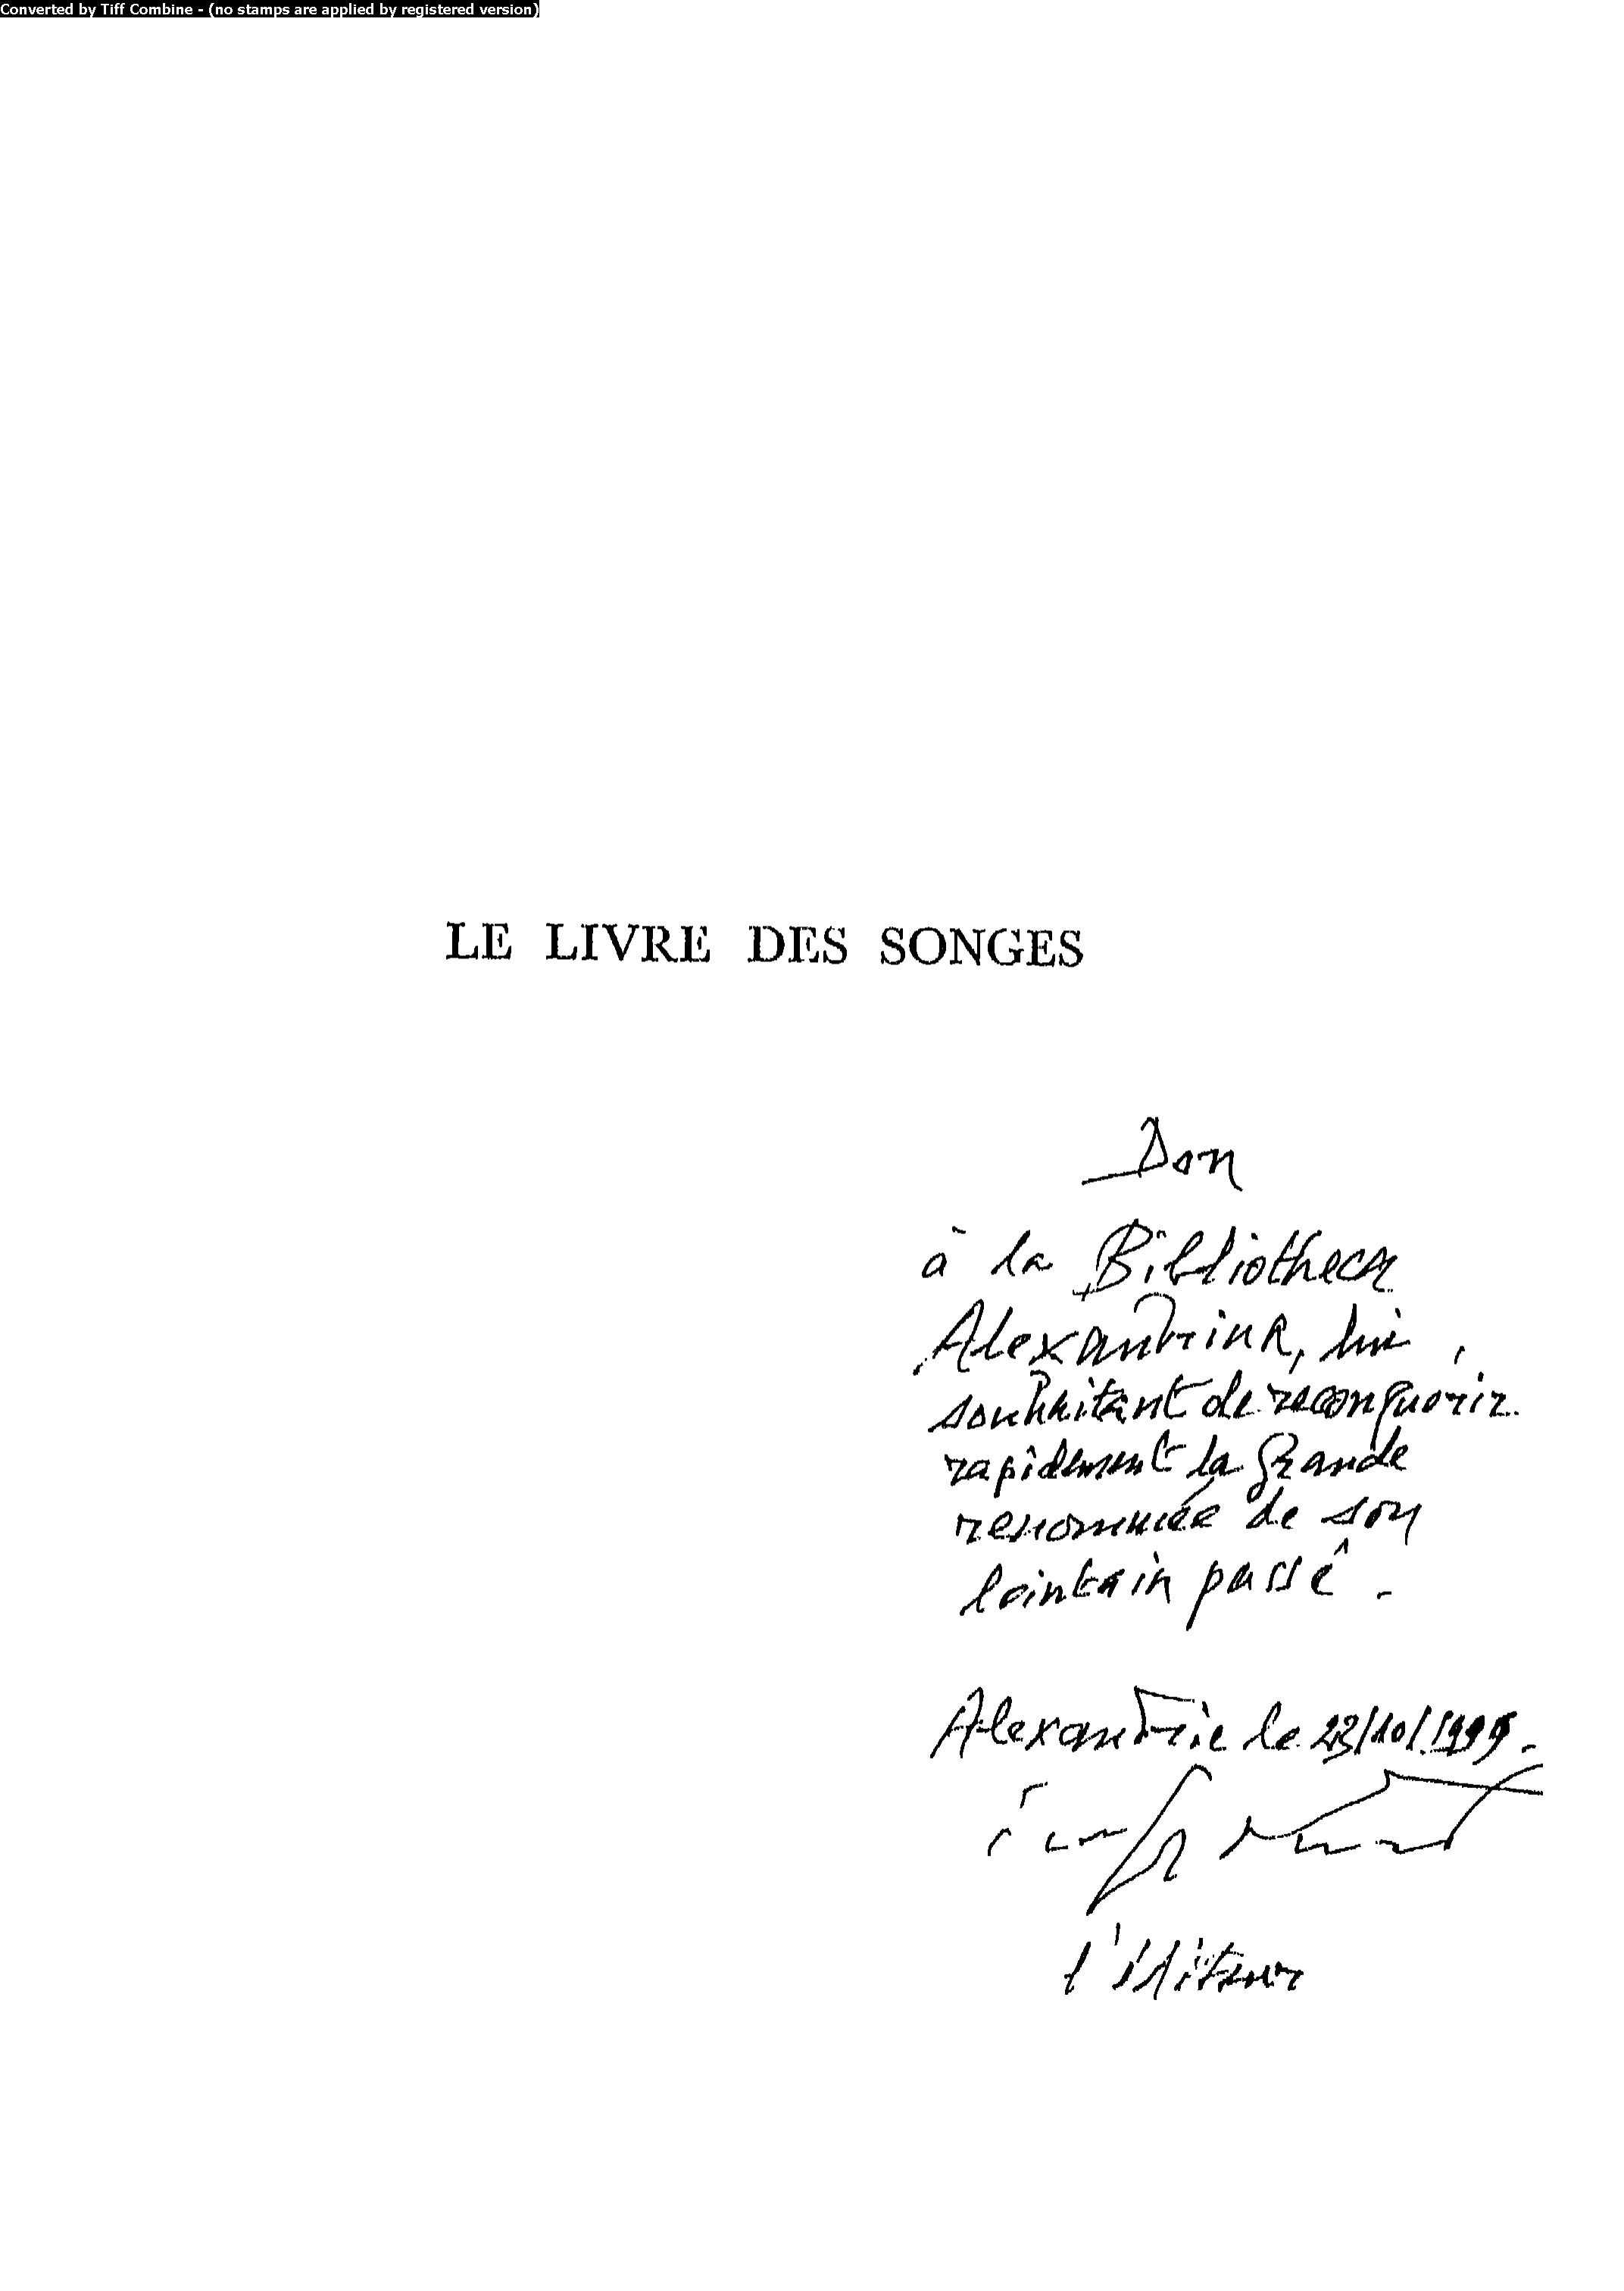 Converted by Tiff Combine - (no stamps are applied by registered version)
LE LIVRE DES SONGES
Don
à la Bibliotheca
Alexandrina, lui
souhaitant de reconquérir
rapidement la grande
renommée de son
lointain passé.
Alexandrie le 23/10/1999.
l'éditeur